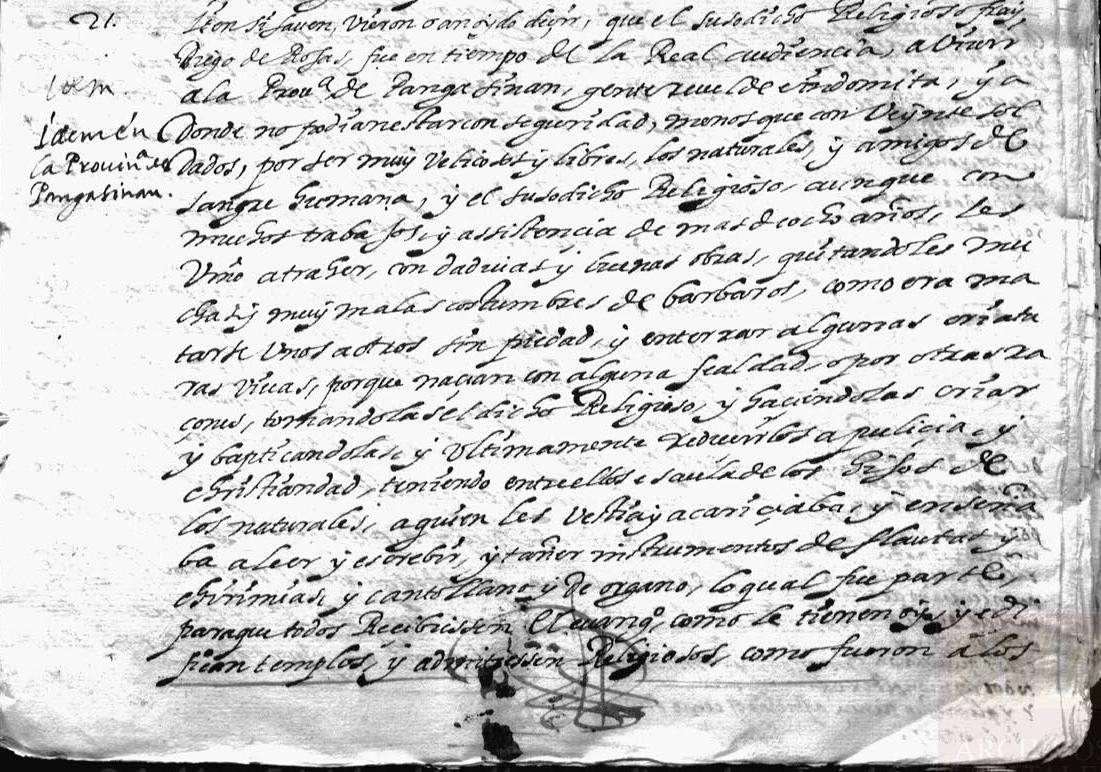 21.
Iten si sauen, vieron o an oydo deçir, que el susodicho Religioso fray
Diego de Rosas, fue en tiempo de la Real audiencia, a Viuir
a la Prouª de Pangasinan, gente reuelde e Yndomita, y a
Idem.
Donde no podian estar con seguridad, menos que con Veynte sol
Idem én
la Prouinª de
Pangasinan.
Dados, por ser muy velicosos y libres, los naturales, y amigos de
sangre humana, y el susodicho Religioso, aunque con
muchos trabajos, y assistencia de mas de ocho años, les
Vino a traher, con dadiuas y buenas obras, quitandoles mu
chas y muy malas costumbres de barbaros, como era ma
tarse Unos a otros sin piedad, y enterrar algunas criatu
ras viuas, porque naçian con alguna fealdad, o por otras ra
çones, tomandolas el dicho Religioso, y haciendolas criar
y baptiçandolas, y Ultimamente reduçirlos a puliçia, y
christiandad, teniendo entre ellos escuela de los hijos de
los naturales, a quien les vestia y acariçiaba, y enseña
ba a leer y escrebir, y tañer instrumentos de flautas y
chirimias, y canto llano y de organo, lo qual fue parte,
para que todos Recibiessen el euangº, como le tienen oy, y edi
fican templos, y admitiessen Religiosos, como fueron a los